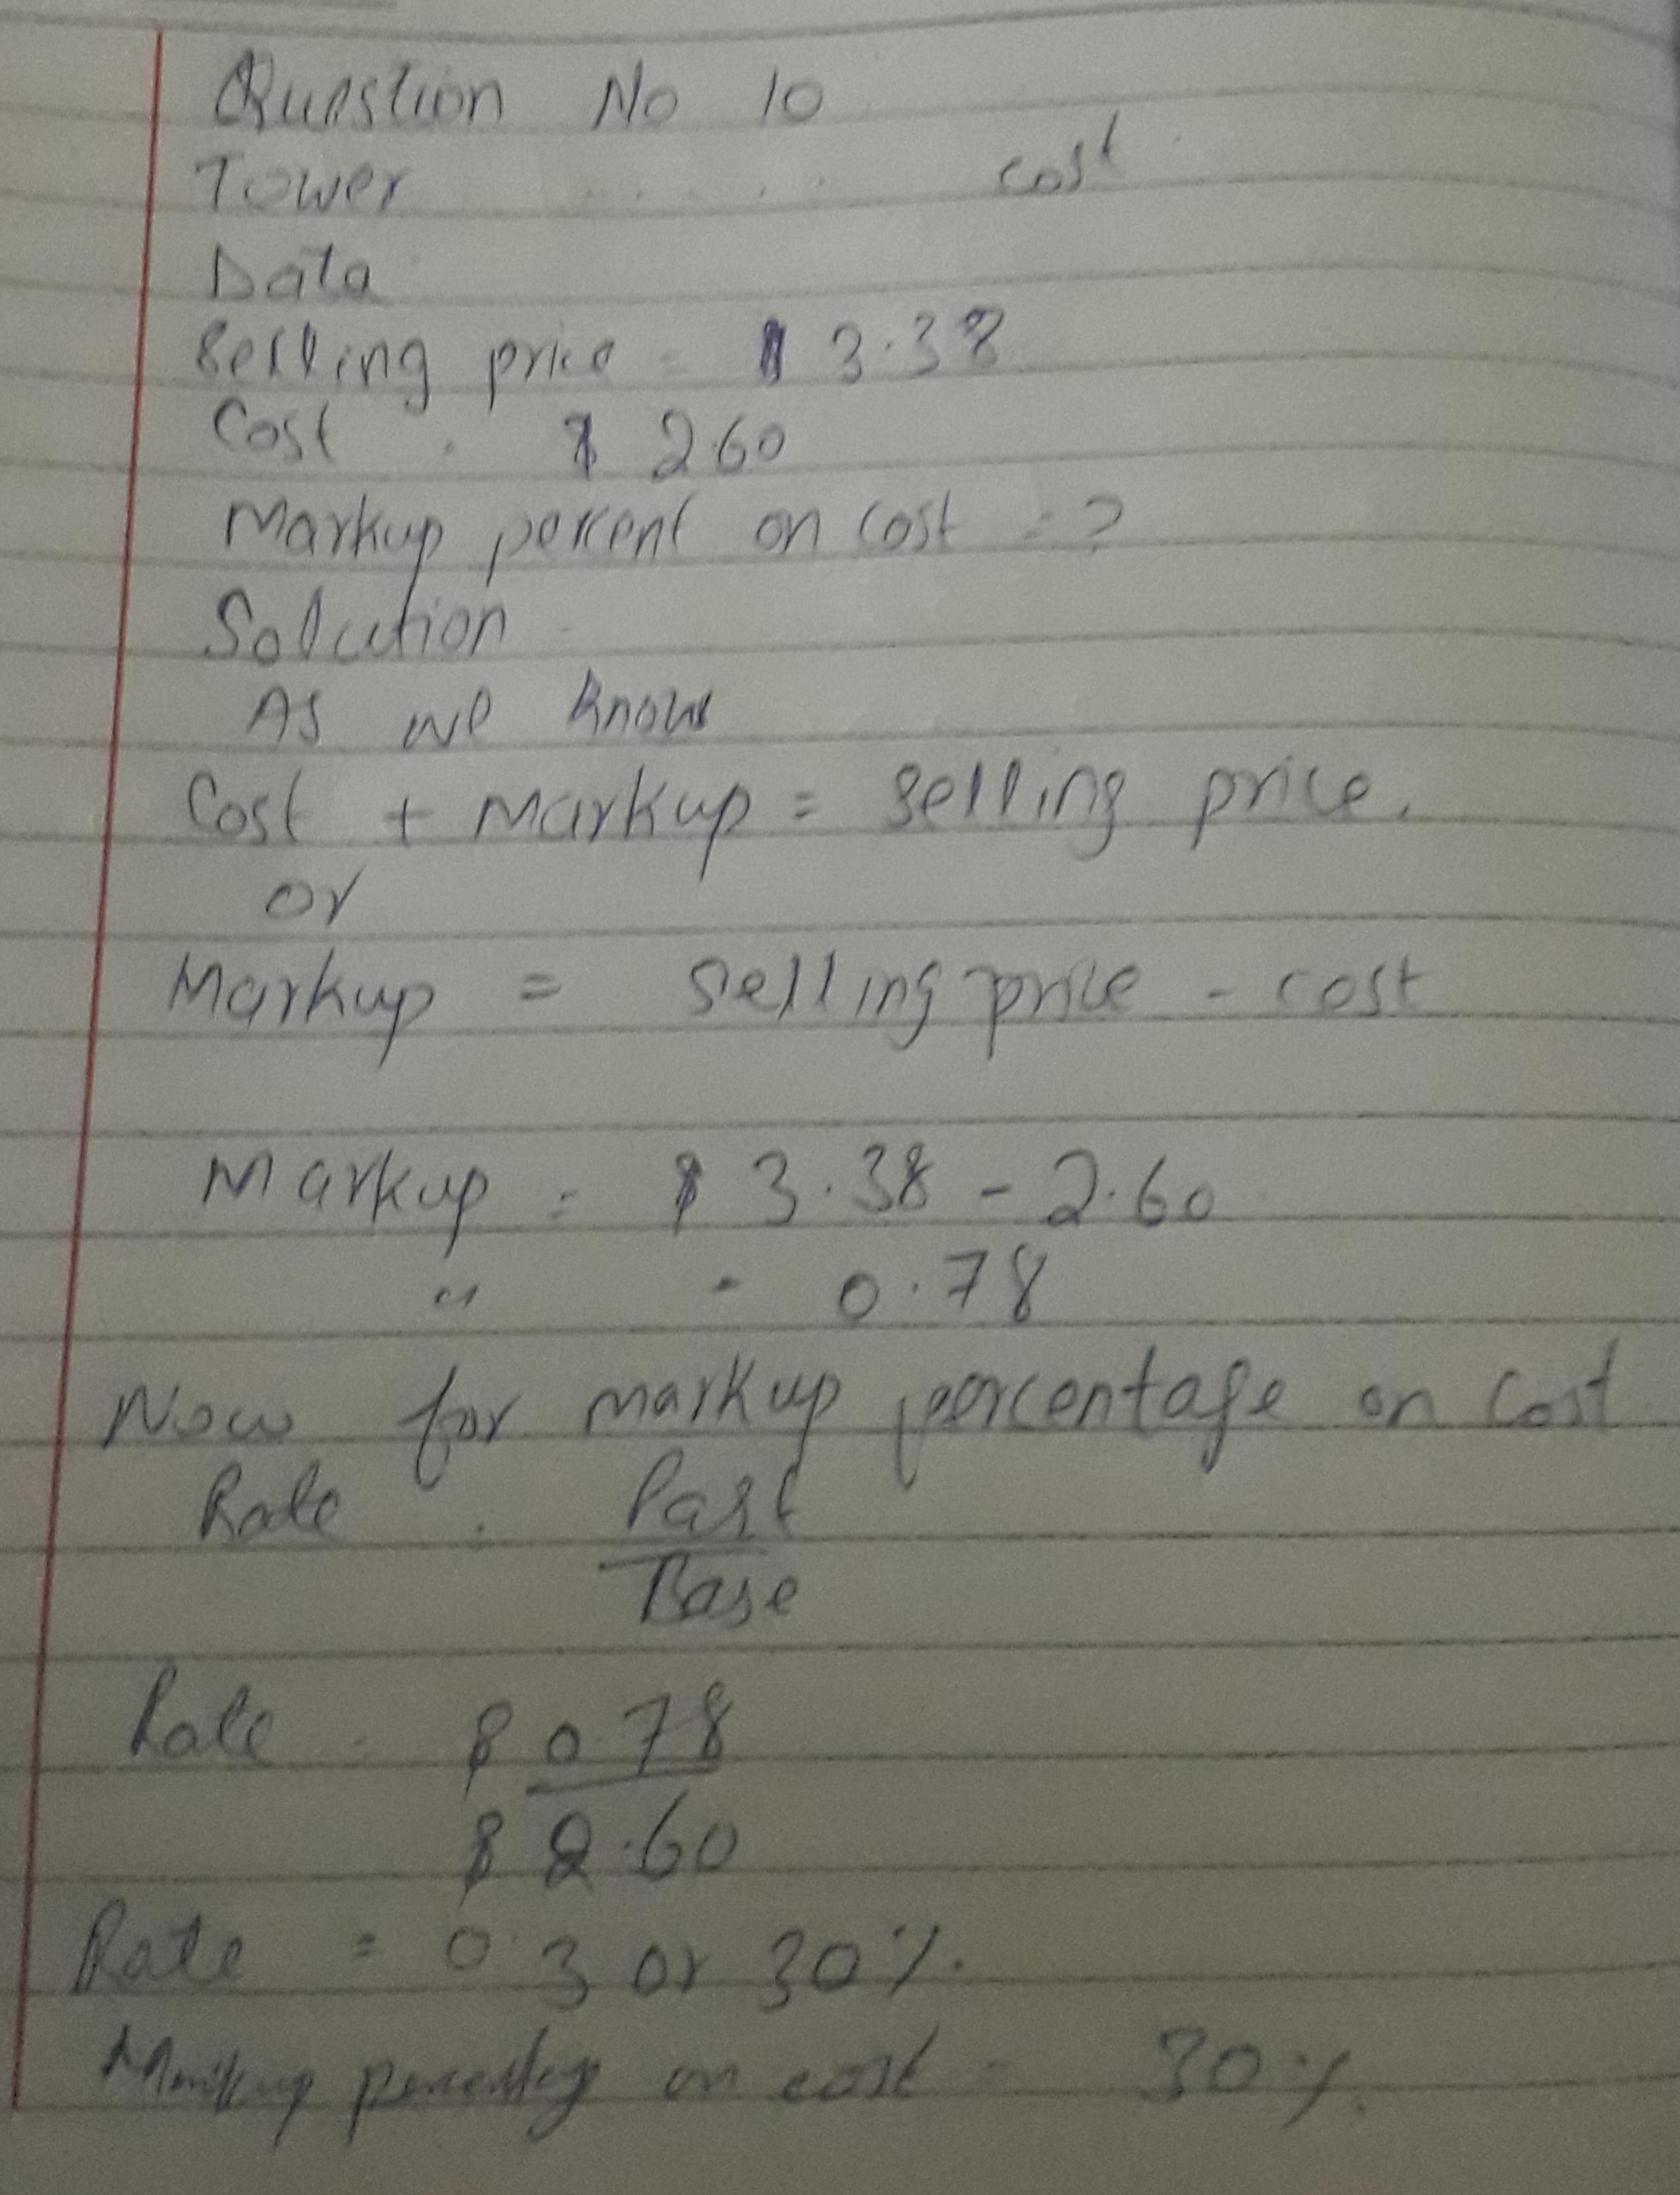 Question No 10
Tower ..... cost
Data
Selling price = $ 3.38
Cost . $ 2.60
Markup percent on cost = ?
Solution
As we know
Cost + Markup = selling price.
or
Markup = selling price - cost
Markup = $ 3.38 - 2.60
" - 0.78
Now for markup percentage on cost
Rate = Part
Base
Rate = $ 0.78
$ 2.60
Rate = 0.3 or 30%.
Markup percentag on cost - 30%.